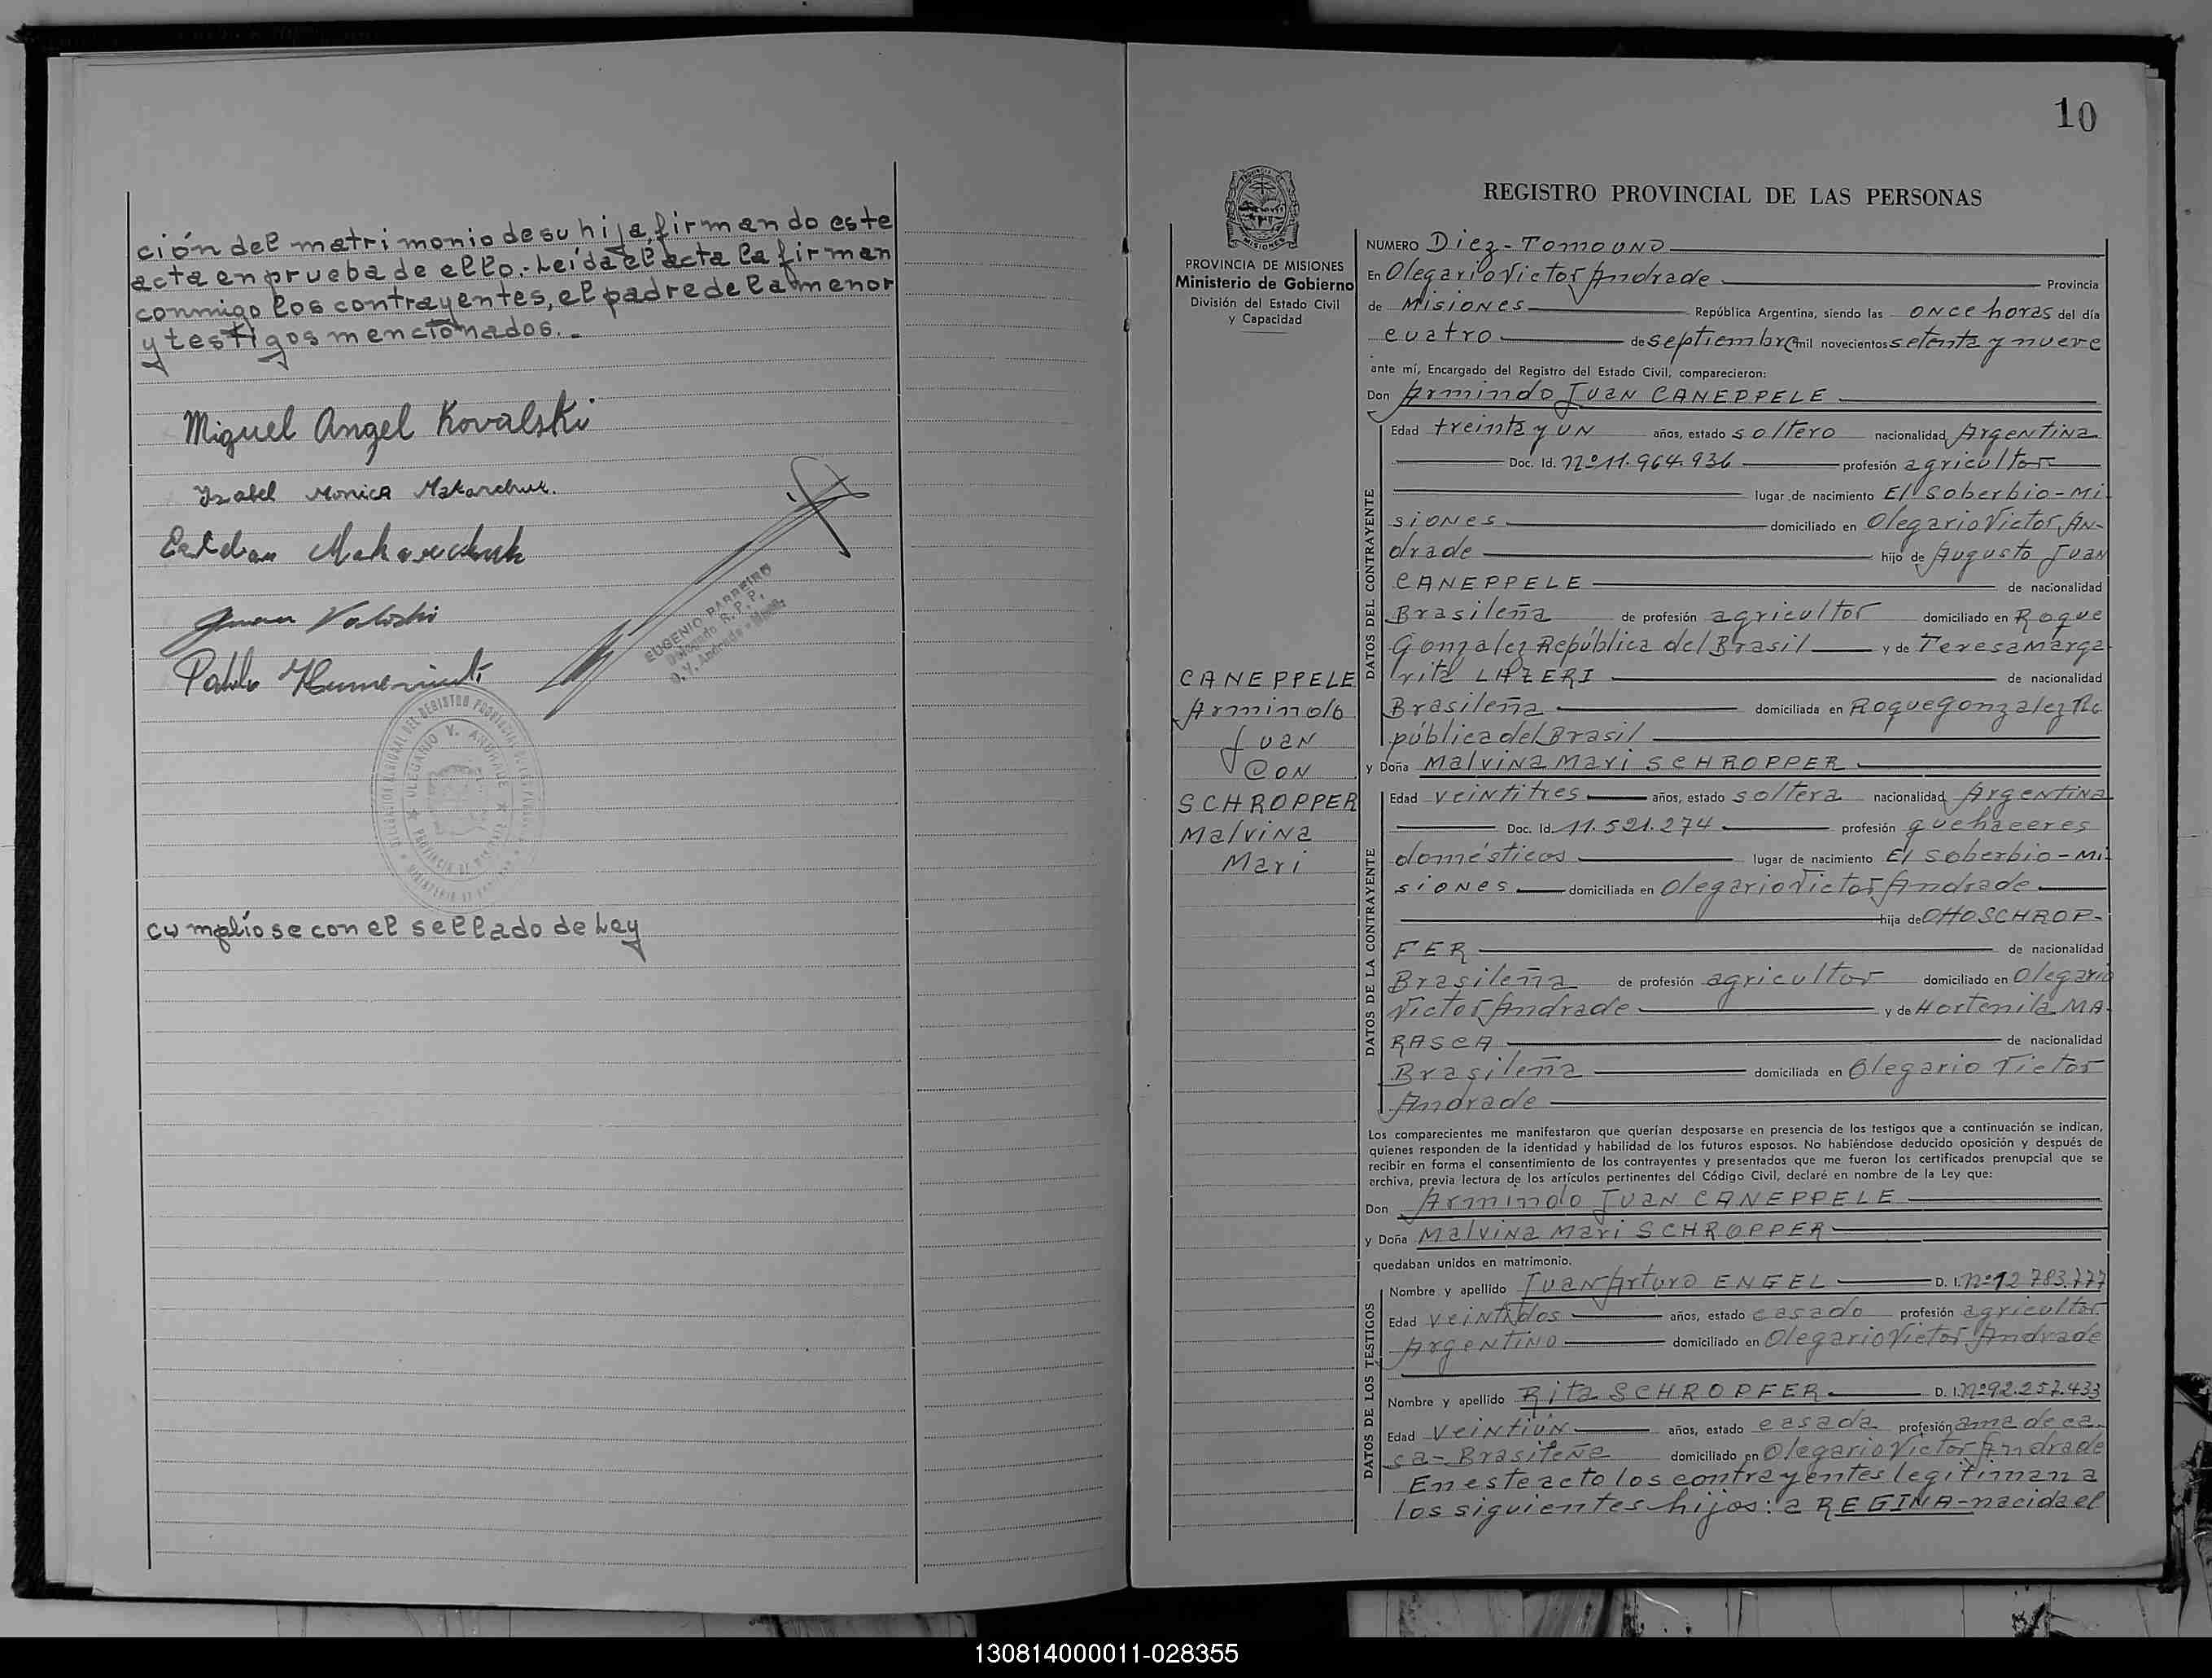 ción del matrimonio de su hija, firmando este
acta en prueba de ello.- Leída el acta la firman
conmigo los contrayentes, el padre de la menor
y testigos mencionados.-
Miguel Angel Kovalski
Isabel Monica Makarchuk.
Esteban Makarchuk
Juan
Pablo
EUGENIO PARREIRO
Delegado R.P.P.
O. V. Andrade - Mnes.
OLEGARIO V. ANDRADE
PROVINCIA DE MISIONES
cumplíose con el sellado de Ley
10
PROVINCIA DE MISIONES
Ministerio de Gobierno
División del Estado Civil
y Capacidad
CANEPPELE
Armindo
Juan
CON
SCHROPPER
Malvina
Mari
REGISTRO PROVINCIAL DE LAS PERSONAS
NUMERO Diez - TOMO UNO
En Olegario Victor Andrade Provincia
de Misiones República Argentina, siendo las once horas del día
cuatro de septiembre mil novecientos setenta y nueve
ante mí, Encargado del Registro del Estado Civil, comparecieron:
Don Armindo Juan CANEPPELE
DATOS DEL CONTRAYENTE
Edad treinta y un años, estado soltero nacionalidad Argentina
Doc. Id. Nº 11.964.936 profesión agricultor
lugar de nacimiento El Soberbio - Mi-
siones domiciliado en Olegario Victor An-
drade hijo de Augusto Juan
CANEPPELE de nacionalidad
Brasileña de profesión agricultor domiciliado en Roque
Gonzalez República del Brasil y de Teresa Marga-
rita LAZERI de nacionalidad
Brasileña domiciliada en Roque Gonzalez Re
pública del Brasil
y Doña Malvina Mari SCHROPPER
DATOS DE LA CONTRAYENTE
Edad veintitres años, estado soltera nacionalidad Argentina
Doc. Id. 11.521.274 profesión quehaceres
domésticos lugar de nacimiento El Soberbio - Mi-
siones domiciliada en Olegario Victor Andrade
hija de Otto SCHROP-
FER de nacionalidad
Brasileña de profesión agricultor domiciliado en Olegario
Victor Andrade y de Hortenila MA-
RASCA de nacionalidad
Brasileña domiciliada en Olegario Victor
Andrade
Los comparecientes me manifestaron que querían desposarse en presencia de los testigos que a continuación se indican,
quienes responden de la identidad y habilidad de los futuros esposos. No habiéndose deducido oposición y después de
recibir en forma el consentimiento de los contrayentes y presentados que me fueron los certificados prenupcial que se
archiva, previa lectura de los artículos pertinentes del Código Civil, declaré en nombre de la Ley que:
Don Armindo Juan CANEPPELE
y Doña Malvina Mari SCHROPPER
quedaban unidos en matrimonio.
DATOS DE LOS TESTIGOS
Nombre y apellido Juan Arturo ENGEL D. I. Nº 12 783.777
Edad veintidos años, estado casado profesión agricultor
Argentino domiciliado en Olegario Victor Andrade
Nombre y apellido Rita SCHROPFER D. I. Nº 92.257.433
Edad veintiún años, estado casada profesión ama de ca-
sa - Brasileña domiciliado en Olegario Victor Andrade
En este acto los contrayentes legitiman a
los siguientes hijos: a REGINA - nacida el
130814000011-028355